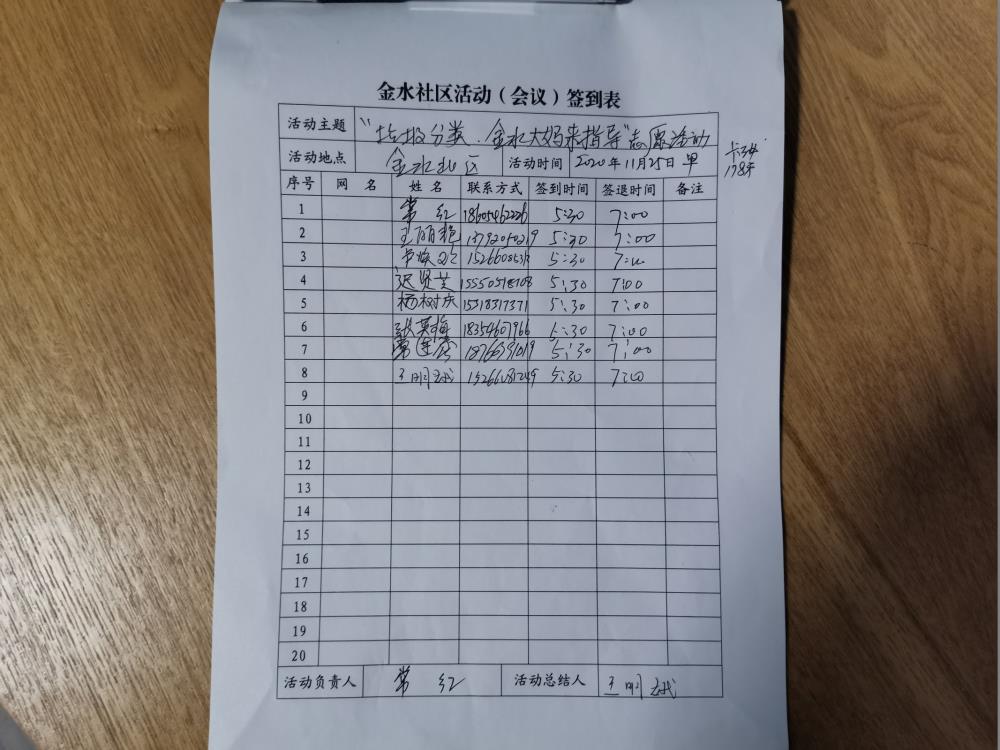 金水社区活动（会议）签到表
活动主题 “垃圾分类.金水大妈来指导”志愿活动
活动地点 金水北区 活动时间 2020年11月25日 早
序号 网 名 姓 名 联系方式 签到时间 签退时间 备注
1 常 红 18605462226 5:30 7:00
2 王丽艳 13792050219 5:30 7:00
3 5:30 7:00
4 迟贤芝 5:30 7:00
5 杨树庆 15318317371 5:30 7:00
6 张英梅 18354607966 5:30 7:00
7 5:30 7:00
8 5:30 7:00
9
10
11
12
13
14
15
16
17
18
19
20
活动负责人 常 红 活动总结人 王明